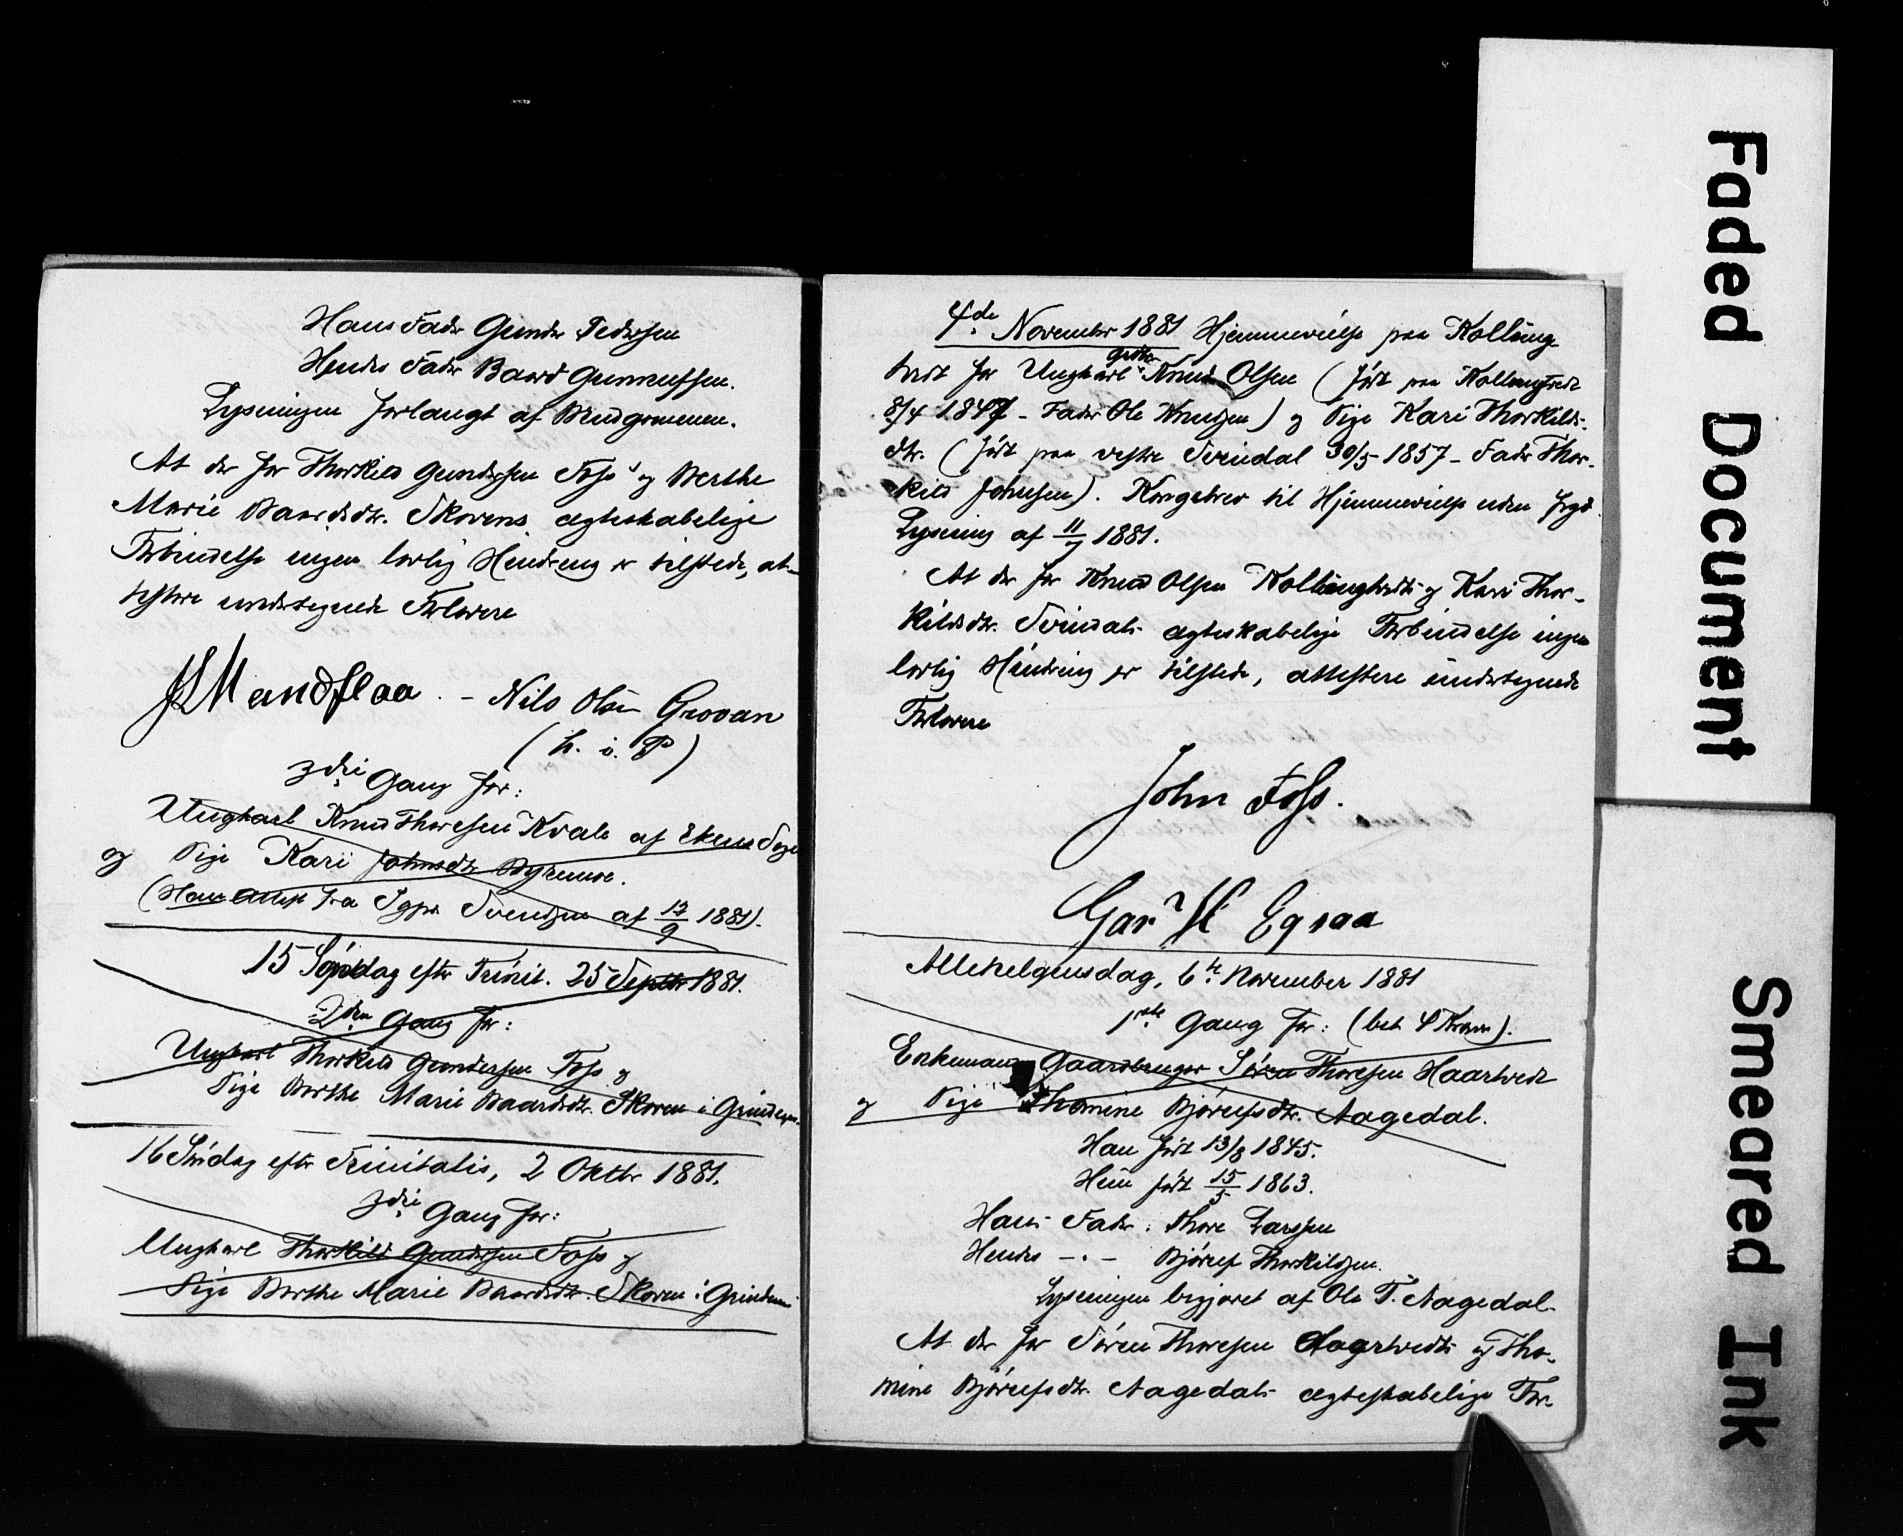 Hans Fader Gunder Pedersen
Hendes Fader Baard Gunnufsen.
Lysningen forlangt af Brudgommen.
At der for Thorkild Gundersen Foss's og Berthe
Marie Baardsdtr. Skorens ægteskabelige
Forbindelse ingen lovlig Hindring er tilstede, at-
testere undertegnede Forlovere
Mandflaa. - Nils Olsen Groven
(h. i. P)
3die Gang for:
Ungkarl Knud Thoresen Kvale af Ekens Sogn
og Pige Kari Johnsdtr. Byremo.
(Hans Attest fra Sgpr. Svendsen af 12/9 1881).
15 Søndag efter Trinit. 25 Septbr 1881.
2den Gang for:
Ungkarl Thorkild Gundersen Foss og
Pige Berthe Marie Baardsdtr. Skoren i Grindem.
16 Søndag efter Trinitatis, 2 Oktbr 1881.
3die Gang for:
Ungkarl Thorkild Gundersen Foss og
Pige Berthe Marie Baardsdtr. Skoren i Grindem
4de November 1881 Hjemmevielse paa Kolling
tvedt for Ungkarl Knud Olsen (født paa Kollingtvedt
8/4 1847 - Fader Ole Knudsen) og Pige Kari Thorkilds-
dtr. (født paa vestre Svindal 30/5 1857 - Fader Thor-
kild Johnsen). Kongebrev til Hjemmevielse uden
Lysning af 11/7 1881.
At der for Knud Olsen Kollingtvedts og Kari Thor-
kildsdtr. Svindals ægteskabelige Forbindelse ingen
lovlig Hindring er tilstede, attestere undertegnede
Forlovere
John Foss.
Egsaa
Allehelgensdag, 6te November 1881
1ste Gang for: (bet. 4 Kroner).
Enkemand Gaardbruger Søren Thoresen Haartvedt
og Pige Thomine Bjørufsdtr. Aagedal.
Han født 13/8 1845.
Hun født 15/5 1863.
Hans Fader: Thore Larssen
Hendes - " - Bjøruf Thorkildsen.
Lysningen begjæret af Ole T. Aagedal.
At der for Søren Thoresen Haartvedts og Tho-
mine Bjørufsdtr. Aagedals ægteskabelige For-
Faded Document
Smeared Ink